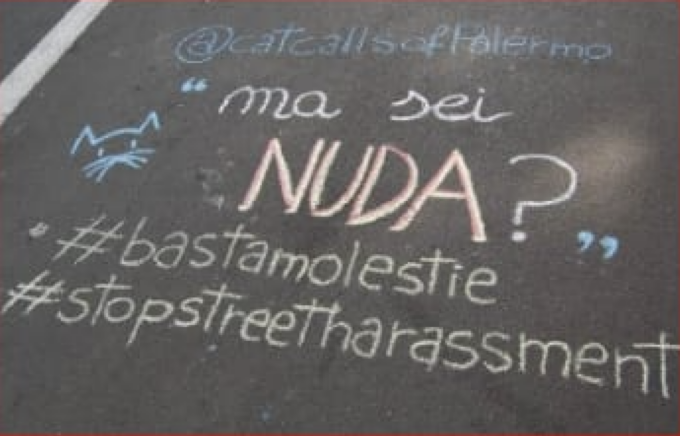 @catcallsofPalermo
“ma sei
NUDA?”
#bastamolestie
#stopstreetharassment